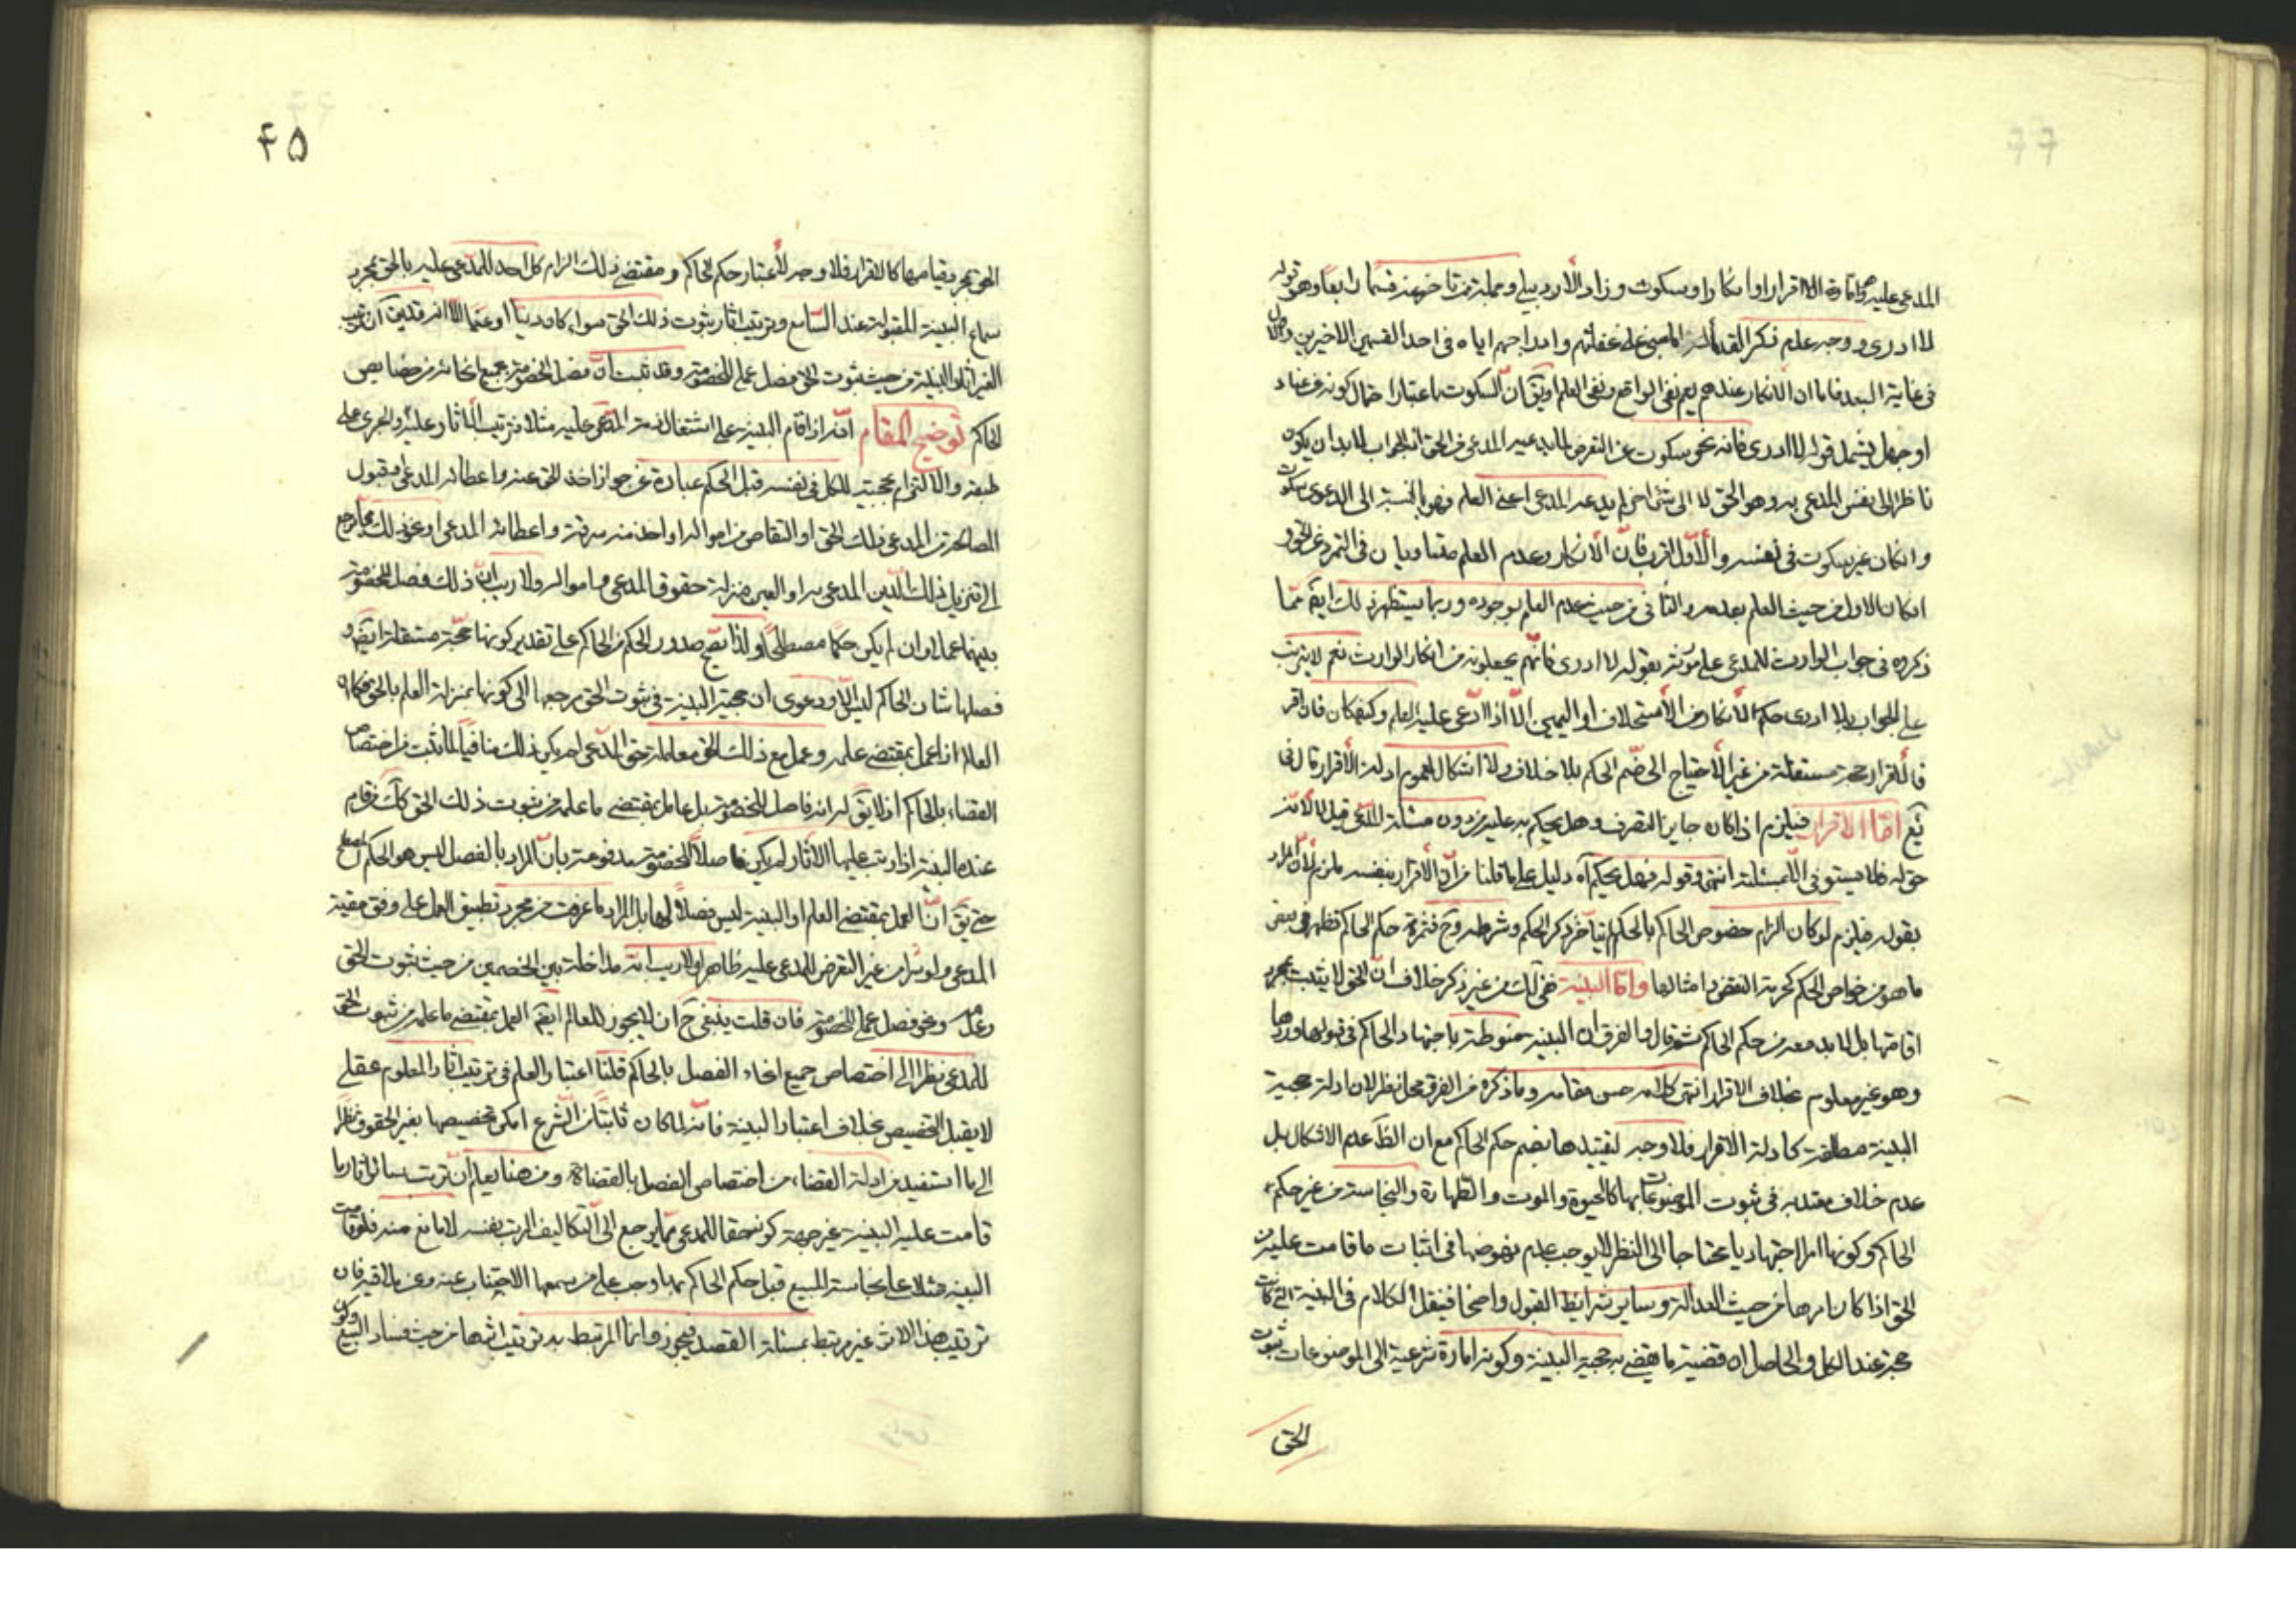 المدعى عليه اما اقرار او انكار او سكوت وزاد الأردبيلى وجملة ممن تاخر عنه قسما رابعا وهو قوله
لا ادرى ووجه عدم ذكر القدماء له المبنى على غفلتهم وادراجهم اياه فى احد القسمين الاخيرين والاول
فى غاية البعد فاما ان الانكار عندهم يعم نفى الواقع ونفى العلم او يقّ انّ السكوت باعتبار احتمال كونه من عناد
او جهل يشمل قوله لا ادرى فانه نحو سكوت عن التعرض لما يدعيه المدعى من الحق اذ الجواب لابد ان يكون
ناظرا الى نفس المدعى به وهو الحق لا الى شئ اخر لم يدعه المدعى اعنى العلم فهو بالنسبة الى الدعوى سكوت
وانكان غير سكوت فى نفسه والأول اقرب فانّ الانكار وعدم العلم متساويان فى التمرد عن الحق و
انكان الاول من حيث العلم بعدمه والثانى من حيث عدم العلم بوجوده وربما يستظهر ذلك ايضّ ممّا
ذكروه فى جواب الوارث للمدعى على مورثه بقوله لا ادرى فانّهم يجعلونه من انكار الوارث نعم لا يترتب
على الجواب بلا ادرى حكم الانكار من الأستحلاف او اليمين الّا اذا ادّعى عليه العلم وكيفكان فان اقر
فالأقرار حجة مستقلة من غير الأحتياج الى ضمّ الحكم بلا خلاف ولا اشكال لعموم ادلة الأقرار قال فى
يع امّا الاقرار فيلزم اذا كان جايز التصرف وهل يحكم به عليه من دون مسئلة المدّعى قيل لا لانّه
حق له فلا يستوفى الّا بمسئلته انتهى وقوله فهل يحكم آه دليل على ما قلنا من انّ الأقرار بنفسه ملزم لانّ المراد
بقوله فيلزم لو كان الزام خصوص الحاكم بالحكم لم يتأخر ذكر الحكم وشرطه وح فثمرة حكم الحاكم تظهر فى بعض
ما هو من خواص الحكم كحرمة النقض وامثالها وامّا البينة ففى لك من غير ذكر خلاف انّ الحق لا يثبت بمجرد
اقامتها بل لابد معه من حكم الحاكم ثم قال والفرق ان البينة منوطة باجتهاد الحاكم فى قبولها وردها
وهو غير معلوم بخلاف الاقرار انتهى كلامه حسن مقامه وما ذكره من الفرق محل نظر لان ادلة حجية
البينة مطلقة كادلة الاقرار فلا وجه لتقييدها بضم حكم الحاكم مع ان الظّ عدم الاشكال بل
عدم خلاف معتد به فى ثبوت الموضوعات بها كالحيوة والموت والطهارة والنجاسة من غير حكم
الحاكم وكونها امرا اجتهاديا محتاجا الى النظر لا يوجب عدم نهوضها فى اثبات ما قامت عليه من
الحق اذا كان امرها من حيث العدالة وساير شرايط القبول واضحا فينقل الكلام فى البينة التى كانت
حجة عند الكل والحاصل ان قضية ما يقضى به حجية البينة وكونه امارة شرعية الى الموضوعات ثبوت
الحق
۴۵
الحق بمجرد قيامها كالاقرار فلا وجه لأعتبار حكم الحاكم ومقتضى ذلك الزام كل احد للمدّعى عليه بالحق بمجرد
سماع البينة المقبولة عند السّامع وترتيب اثار ثبوت ذلك الحق سواء كان دينا او عينا الّا انه قد يق انّ ترتيب
الغير اثار البينة من حيث ثبوت الحق فصل عملى للخصومة وقد ثبت انّ فصل الخصومة بجميع انحائه من خصايص
الحاكم توضيح المقام انّه اذا قام البينة على اشتغال ذمة المدّعى عليه مثلا فترتيب الأثار وعليه والجرى على
طبقه والالتزام بحجيته للكل فى نفسه قبل الحكم عبارة عن جواز اخذ الحق عنه واعطائه المدعى وقبول
المصالحة من المدعى ذلك الحق او التقاص من امواله او اخذه منه سرقة واعطائه المدعى او نحو ذلك مما يرجع
الى تنزيل ذلك الدّين المدعى به او العين منزلة حقوق المدعى واموالر ولا ريب انّ ذلك فصل للخصومة
بينهما عملا وان لم يكن حكما مصطلحا ولذا يقبح صدور الحكم من الحاكم على تقدير كونها حجّة مستقلة ايضّ و
فصلها شان الحاكم ليس الّا ودعوى ان حجية البينة فى ثبوت الحق مرجعها الى كونها بمنزلة العلم بالحق فكما انّ
العالم اذا عمل بمقتضى علمه وعمل مع ذلك الحق معاملة حق المدّعى لم يكن ذلك منافيا لما ثبت من اختصاص
القضاء بالحاكم اذ لا يقّ له انه فاصل للخصومة بل عامل بمقتضى ما علمه من ثبوت ذلك الحق كك من قام
عنده البينة اذا رتب عليها الاثار لم يكن فاصلا للخصومة مدفوعة بانّ المراد بالفصل ليس هو الحكم المصطلح
حتى يقّ انّ العمل بمقتضى العلم او البينة ليس فصلا لها بل المراد ما عرفت من مجرد تطبيق العمل على وفق حقية
المدعى ولو سرا من غير التعرض للمدعى عليه ظاهرا ولا ريب انّه مداخلة بين الخصمين من حيث ثبوت الحق
وعدمه ونحو فصل عملى للخصومة فان قلت ينبغى ح ان لا يجوز للعالم ايضّ العمل بمقتضى ما علمه من ثبوت الحق
للمدعى نظرا الى اختصاص جميع انحاء الفصل بالحاكم قلنا اعتبار العلم فى ترتيب اثار المعلوم عقلى
لا يقبل التخصيص بخلاف اعتبار البينة فانه لما كان ثابتا من الشرع امكن تخصيصها بغير الحقوق نظرا
الى ما استفيد من ادلة القضاء من اختصاص الفصل بالقضاة ومن هنا يعلم انّ ترتب سائر اثار ما
قامت عليه البينة غير جهة كونه حقا للمدعى مما يرجع الى التكاليف المرتب بنفسه لا مانع منه فلو قامت
البينة مثلا على نجاسة المبيع قبل حكم الحاكم بها وجب على من سمعها الاجتناب عنه وعن ملاقيه فان
ترتيب هذا الاثر غير مرتبط بمسئلة الفصل فيجوز وانما المرتبط به ترتيب اثرها من حيث فساد البيع وكون